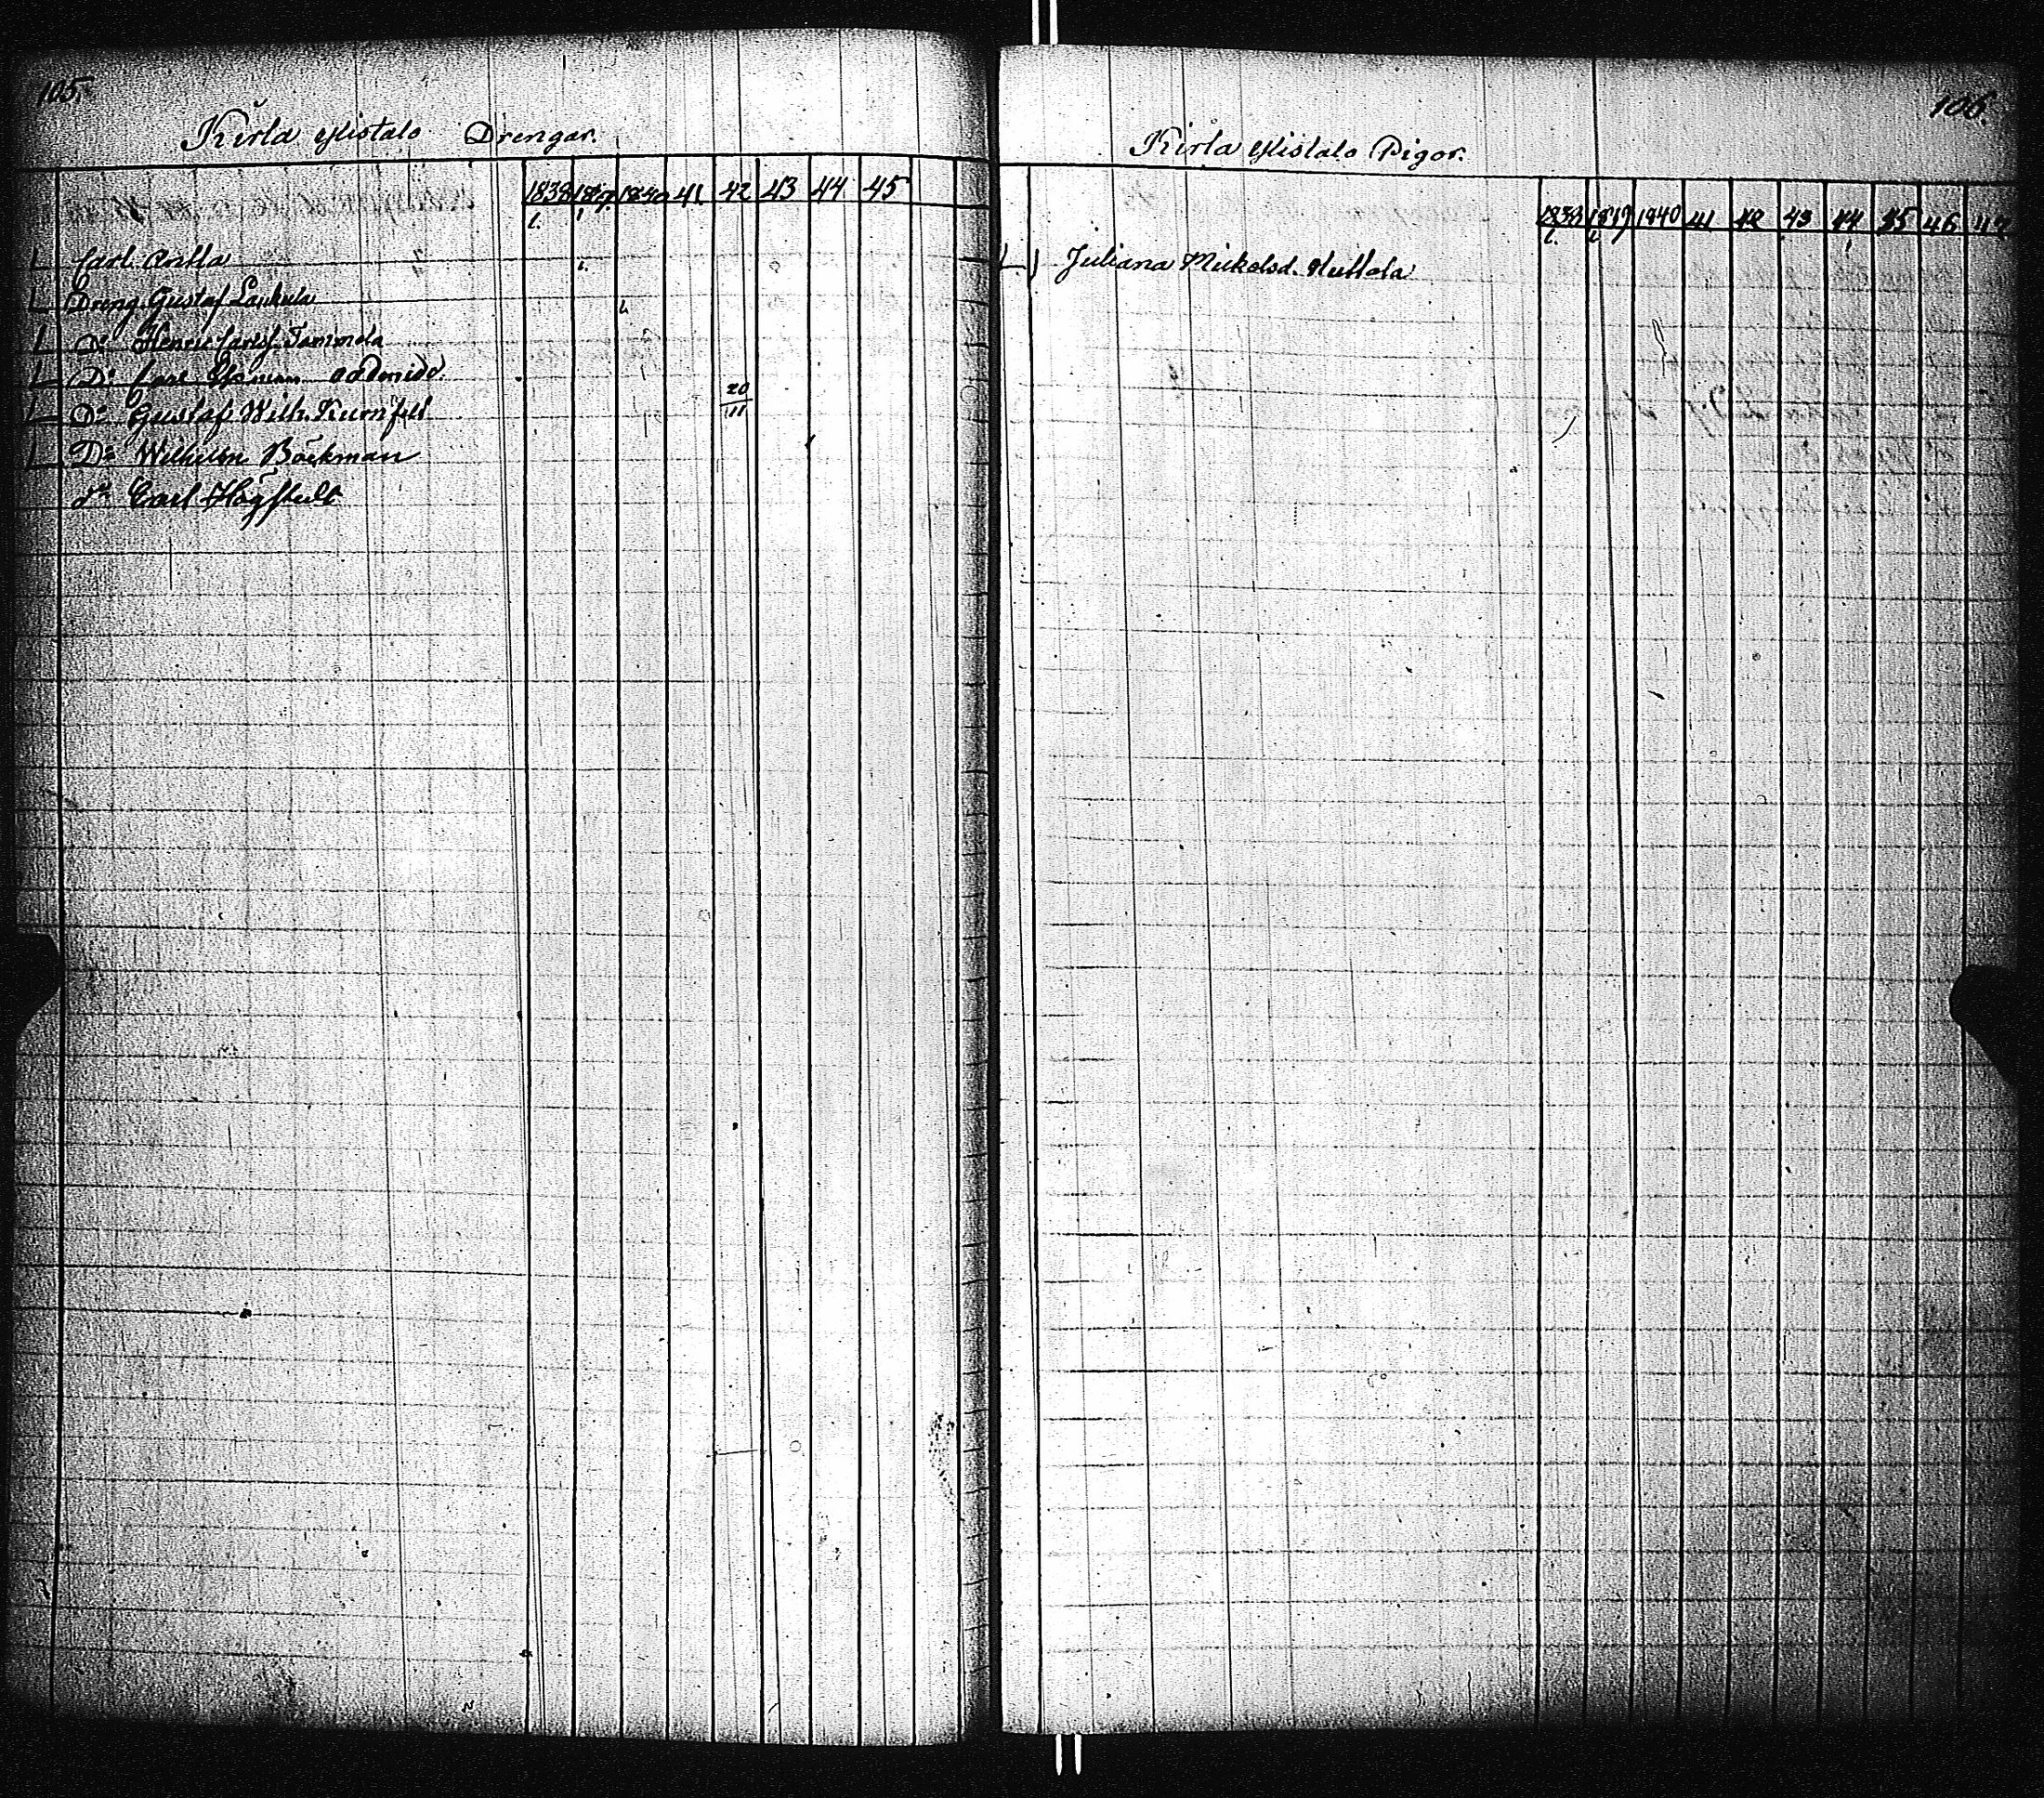 105.
Kirla Ylistalo Drengar.
1838 1839 1840 41 42 43 44 45
Carl Anttla
Dreng Gustaf Laukula
Do Henric Carlss. Tammela
Do Carl
20
11
Do Gustaf Wilh.
Do Wilhelm Böckman
do Carl Högstelt
106.
Kirla Ylistalo Pigor.
1838 1839 1840 41 42 43 44 45 46 47
Juliana Mickelsd. Huttola